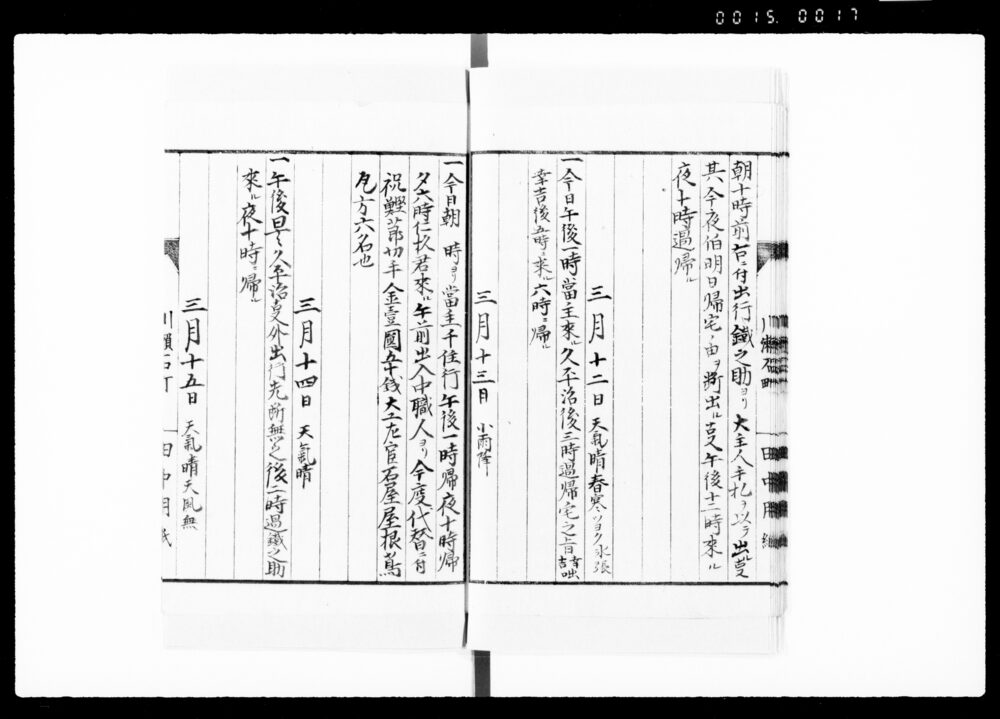 0015.0017
朝十時前台ニ付出行鐵之助ヨリ大主人手札ヲ以テ出
其今夜伯明日帰宅ノ由ヲ断出ル又午後十二時來ル
夜十時過帰ル
三月十二日 天氣晴春寒ツヨク氷張
一今日午後一時當主來ル久平治後三時過帰宅之上
幸吉後五時ニ來ル六時ニ帰ル
三月十三日 小雨降
一今日朝 時ヨリ當主千住行午後一時帰夜十時帰
夕六時仁杉君來ル午前出入中職人ヨリ今度代替ニ付
祝鰹節切手金壹圓五十銭大工左官石屋屋根鳶
凡方六名也
三月十四日 天氣晴
一午後早々久平治又外出行先断無之後二時過鐵之助
來ル夜十時ニ帰ル
三月十五日 天氣晴天風無
川瀬石町 田中用紙